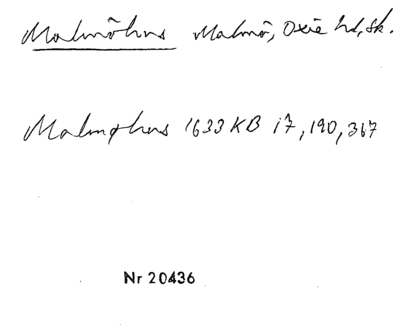 Malmöhus Malmö, Oxie hd, Sk.
Malmøhus 1633 KB i7, 190, 367
Nr 20436